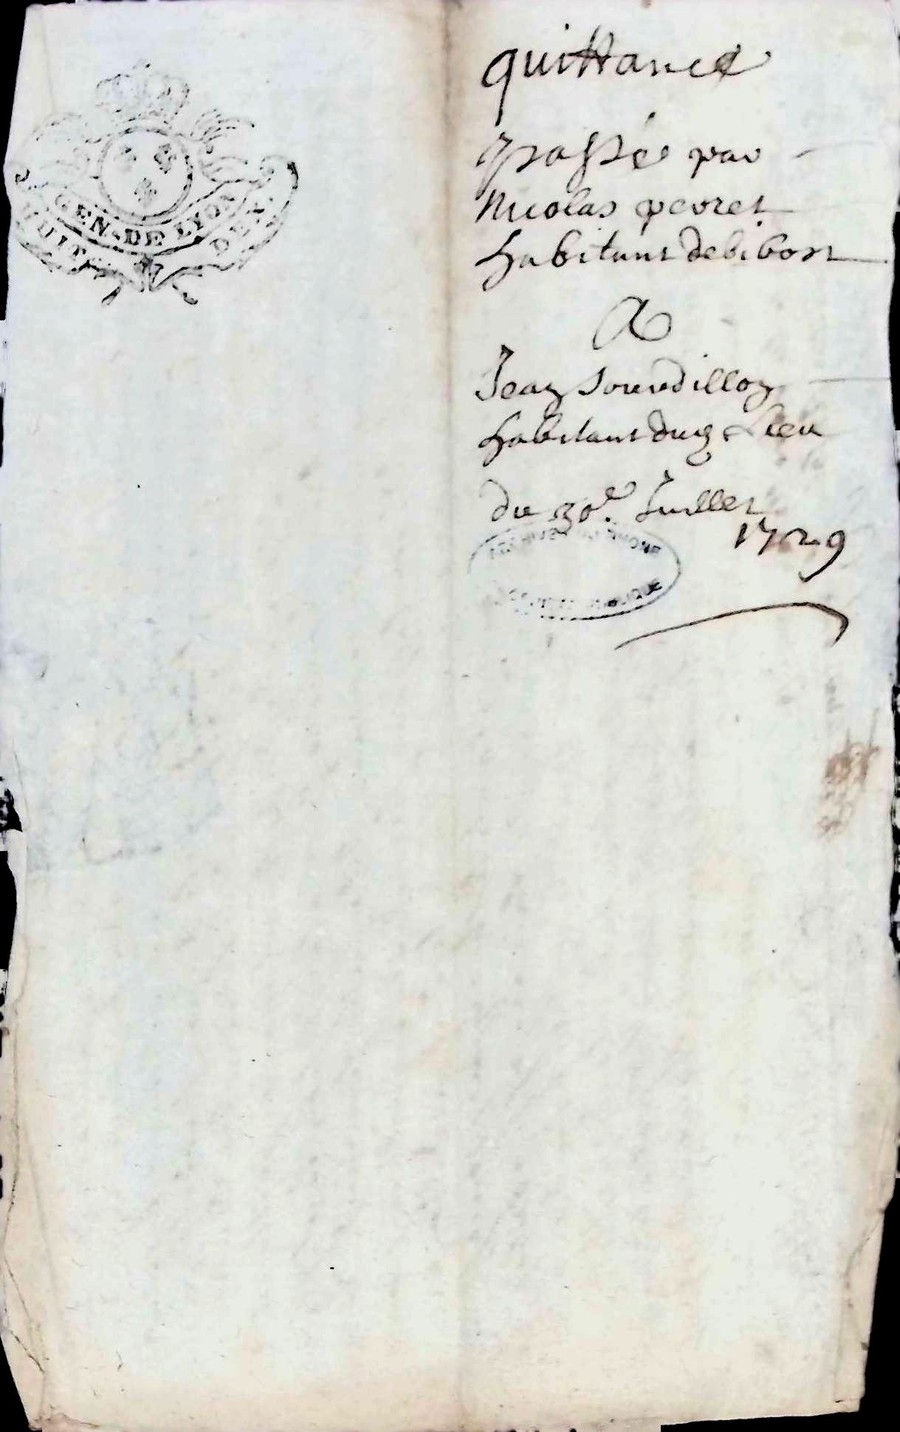 GEN. DE LYON
HUIT DEN.
quittance
passée par
Nicolas peyret
habitant de bibost
A
Jean Sourdillon
habitant dud Lieu
du 30e. Juillet
1729